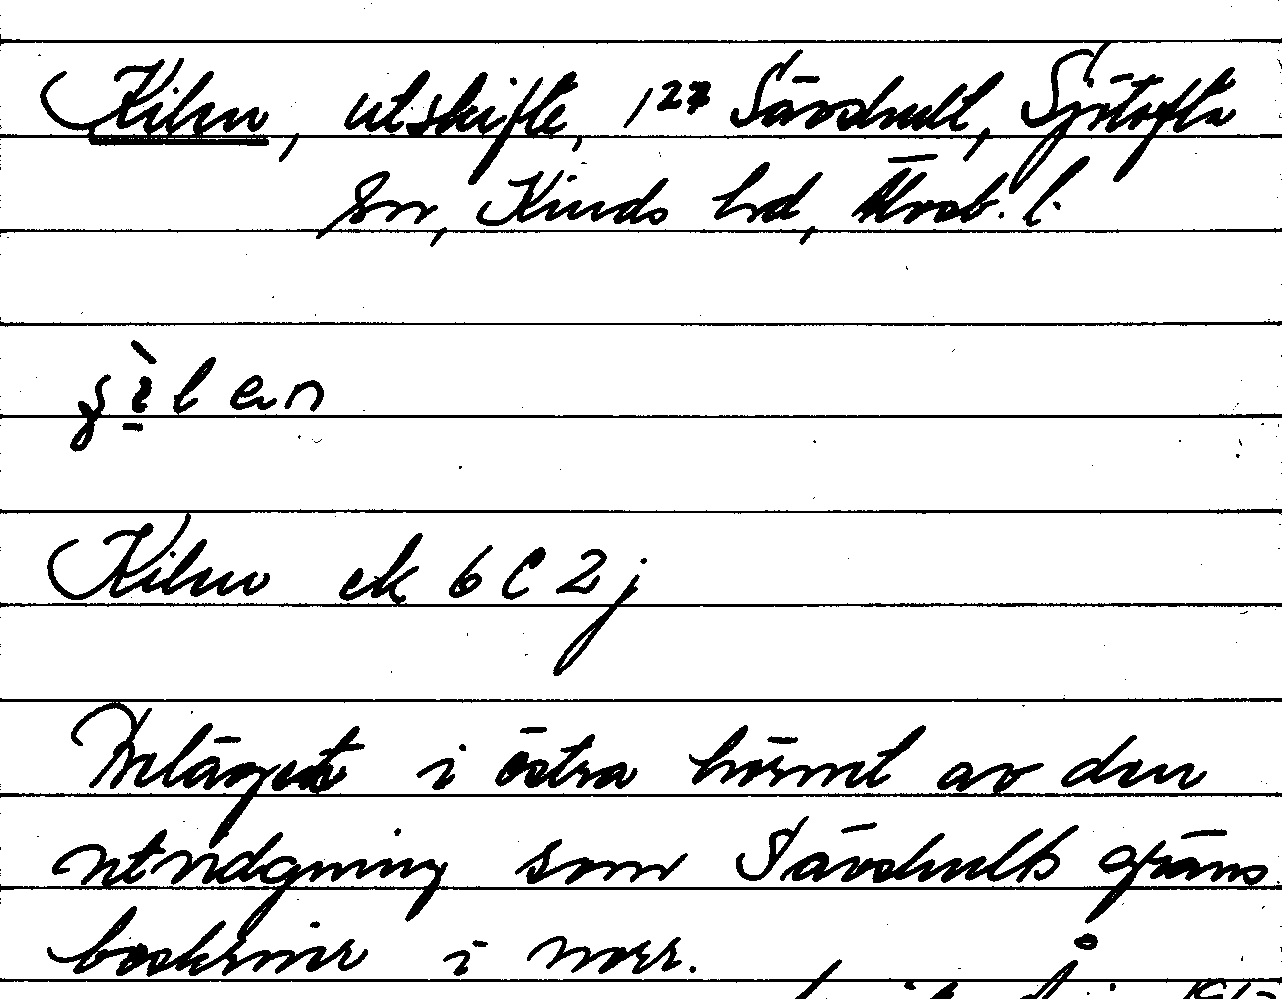 Kilen, utskifte, 1²⁷ Sävshult, Sjötofta
sn, Kinds hd, Älvsb. l.
Kilen ek 6 C 2 j
Beläget i östra hörnet av den
utbuktning som Sävshults gräns
beskriver i norr.